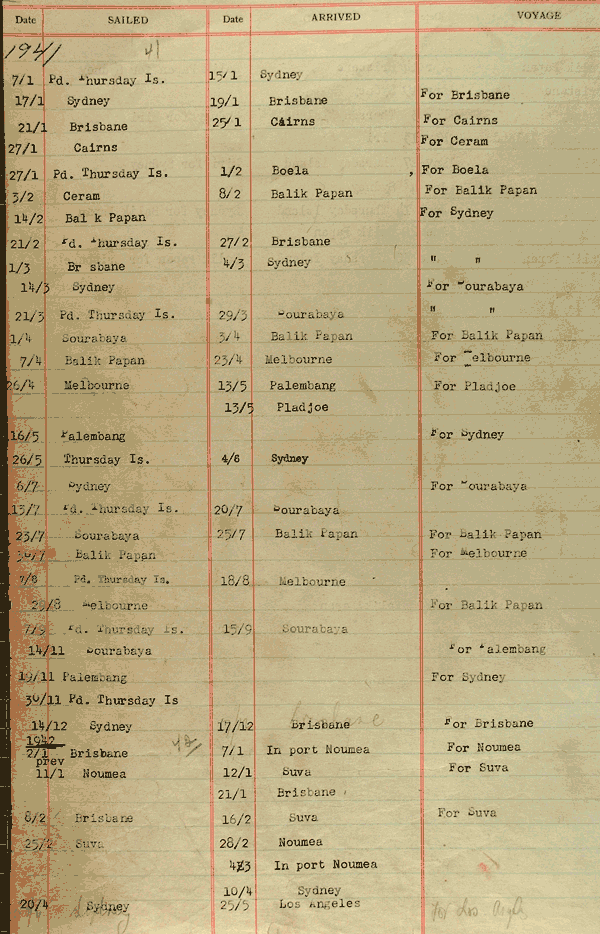 Date SAILED Date ARRIVED VOYAGE
1941 41
7/1 Pd. Thursday Is. 15/1 Sydney
17/1 Sydney 19/1 Brisbane For Brisbane
21/1 Brisbane 25/1 Cairns For Cairns
27/1 Cairns For Ceram
27/1 Pd. Thursday Is. 1/2 Boela , For Boela
3/2 Ceram 8/2 Balik Papan For Balik Papan
14/2 Bal k Papan For Sydney
21/2 Pd. Thursday Is. 27/2 Brisbane
1/3 Br sbane 4/3 Sydney " "
14/3 Sydney For Sourabaya
21/3 Pd. Thursday Is. 29/3 Sourabaya " "
1/4 Sourabaya 3/4 Balik Papan For Balik Papan
7/4 Balik Papan 23/4 Melbourne For Melbourne
26/4 Melbourne 13/5 Palembang For Pladjoe
13/5 Pladjoe
16/5 Palembang For Sydney
26/5 Thursday Is. 4/6 Sydney
6/7 Sydney For Sourabaya
13/7 Pd. Thursday Is. 20/7 Sourabaya
23/7 Sourabaya 25/7 Balik Papan For Balik Papan
30/7 Balik Papan For Melbourne
7/8 Pd. Thursday Is. 18/8 Melbourne
29/8 Melbourne For Balik Papan
7/9 Pd. Thursday Is. 15/9 Sourabaya
14/11 Sourabaya For Palembang
19/11 Palembang For Sydney
30/11 Pd. Thursday Is
14/12 Sydney 17/12 Brisbane For Brisbane
1942 42
2/1 Brisbane 7/1 In port Noumea For Noumea
prev
11/1 Noumea 12/1 Suva For Suva
21/1 Brisbane
8/2 Brisbane 16/2 Suva For Suva
25/2 Suva 28/2 Noumea
4/3 In port Noumea
10/4 Sydney
20/4 Sydney 25/5 Los Angeles For Los Angls